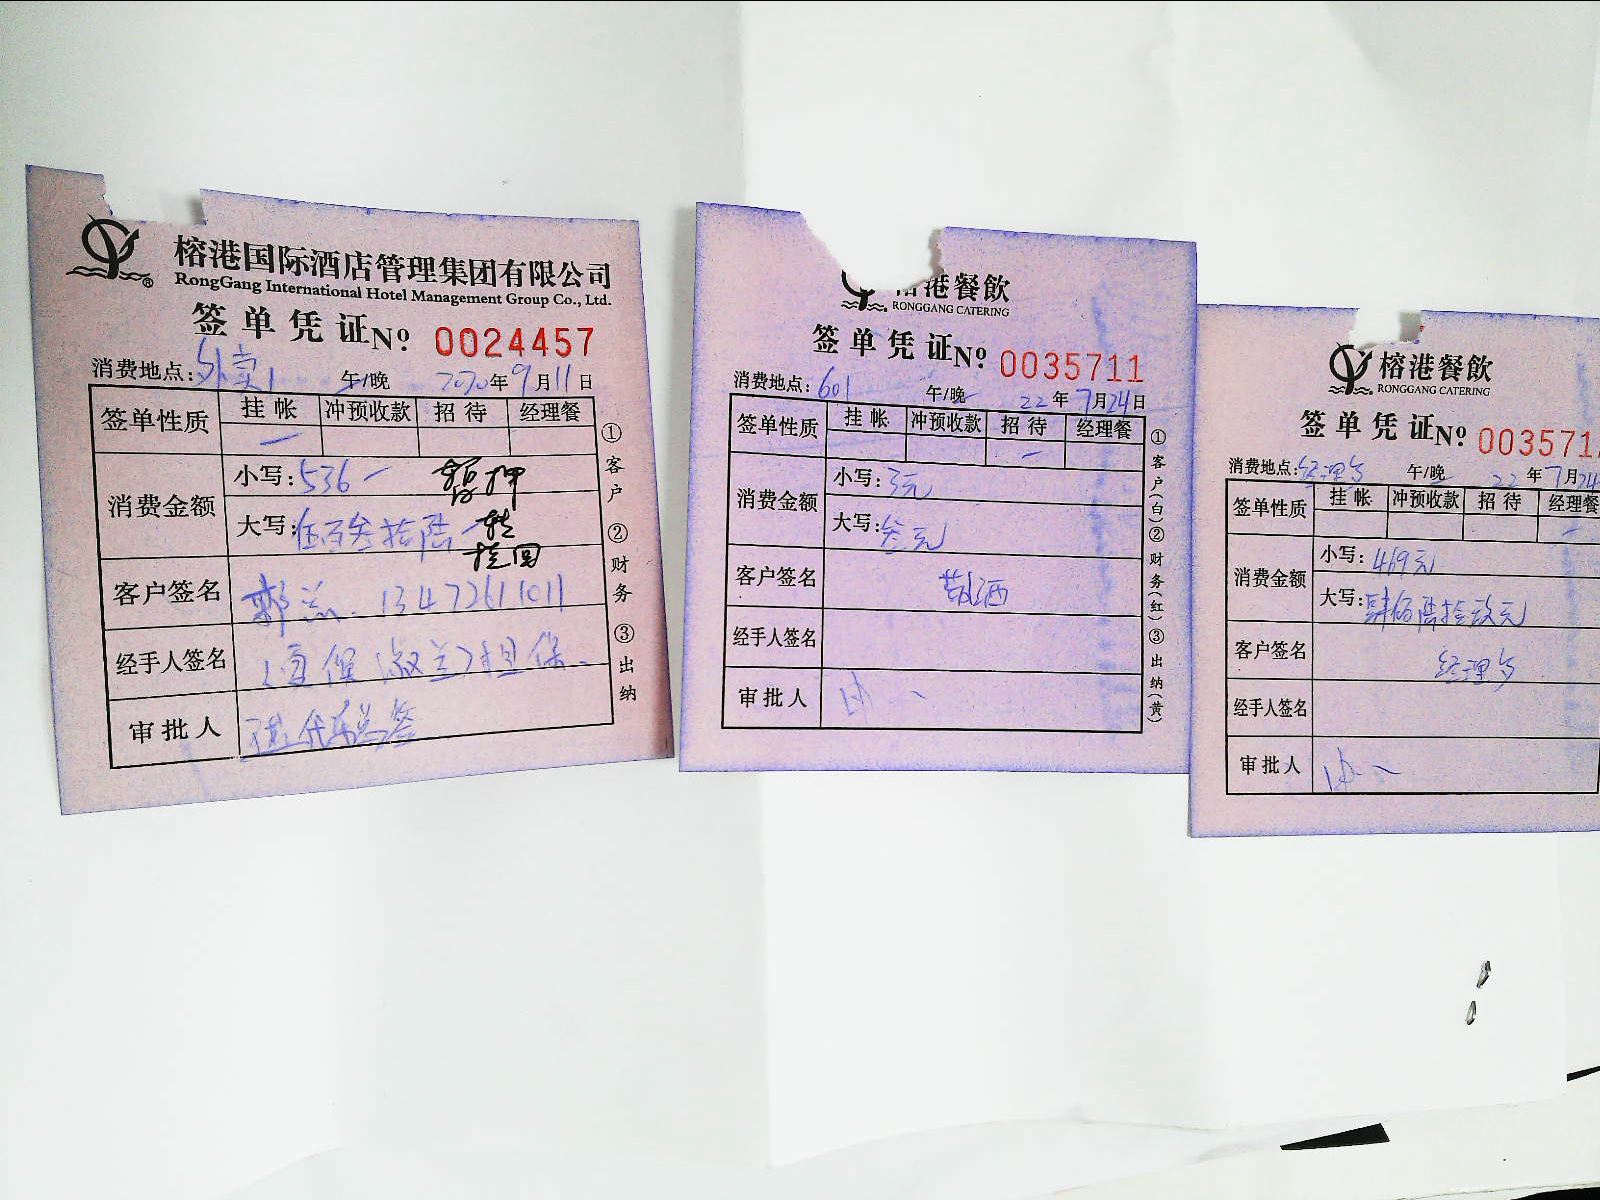 榕港国际酒店管理集团有限公司
RongGang International Hotel Management Group Co., Ltd.
签单凭证 No 0024457
消费地点:外卖1 午/晚 2020年9月11日
签单性质 挂帐 冲预收款 招待 经理餐
消费金额 小写:536
大写:伍百叁拾陆
客户签名 13472611011
经手人签名 担保
审批人
①客户 ②财务 ③出纳
港餐飲
RONGGANG CATERING
签单凭证 No 0035711
消费地点:601 午/晚 22年7月24日
签单性质 挂帐 冲预收款 招待 经理餐
消费金额 小写:3元
大写:叁元
客户签名
经手人签名
审批人
①客户(白)②财务(红)③出纳(黄)
榕港餐飲
RONGGANG CATERING
签单凭证 No 003571
消费地点:经理 午/晚 22年7月24
签单性质 挂帐 冲预收款 招待 经理餐
消费金额 小写:469元
大写:肆佰陆拾玖元
客户签名 经理
经手人签名
审批人